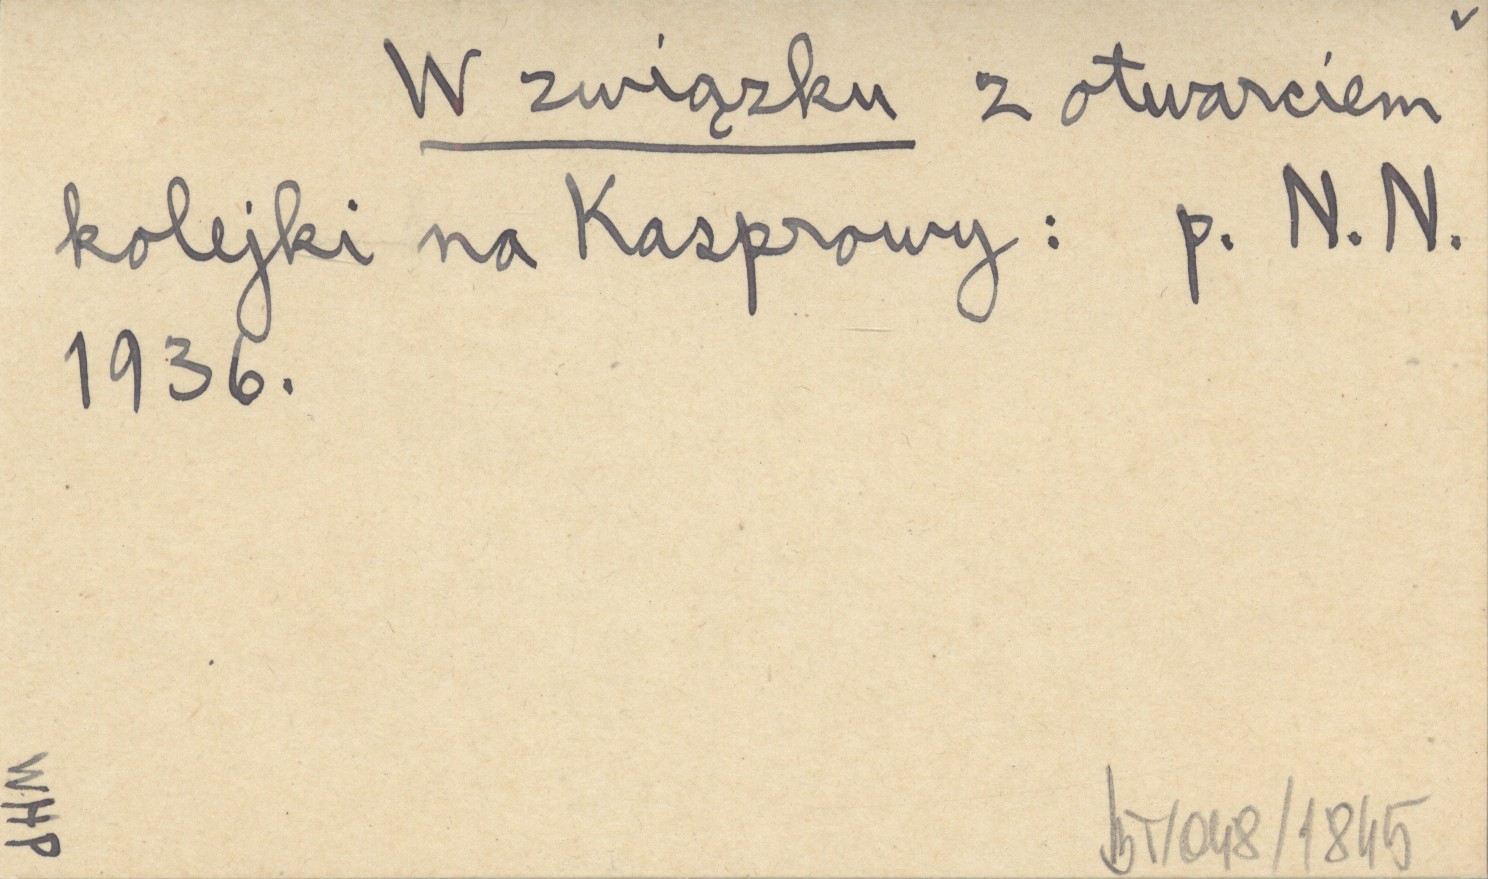 W związku z otwarciem
kolejki na Kasprowy: p. N.N.
1936.
WHP
/048/1845